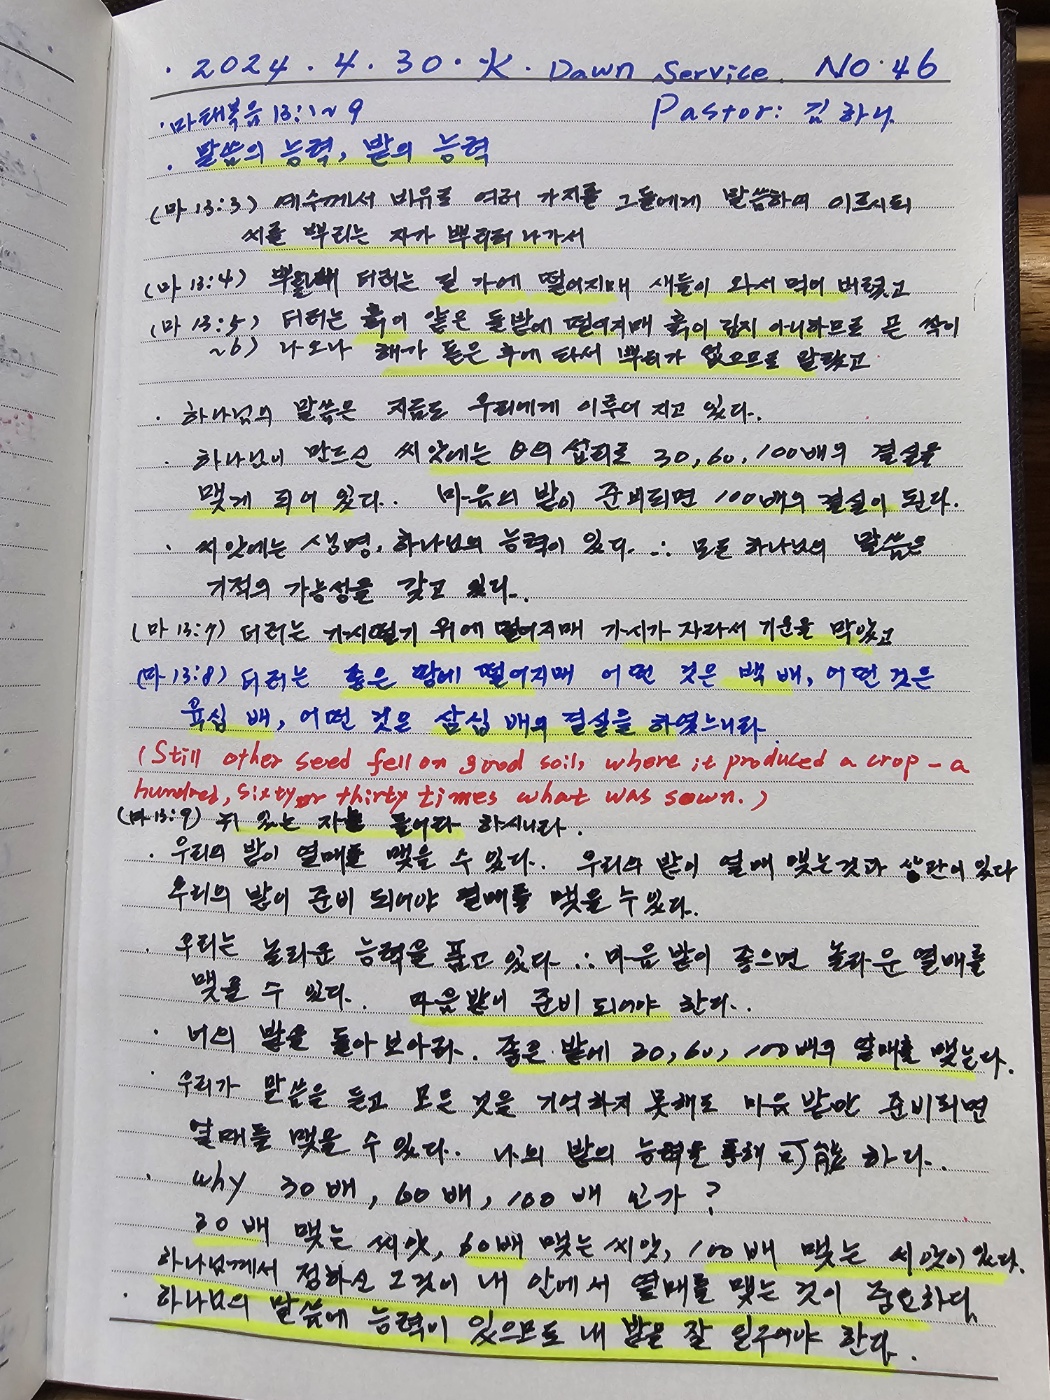 · 2024 . 4 . 30 · 水 . Dawn Service. NO. 46
· 마태복음 13:1~9 Pastor: 김하나
· 말씀의 능력, 밭의 능력
(마 13:3) 예수께서 비유로 여러 가지를 그들에게 말씀하여 이르시되
씨를 뿌리는 자가 뿌리러 나가서
(마 13:4) 뿌릴새 더러는 길 가에 떨어지매 새들이 와서 먹어 버렸고
(마 13:5) 더러는 흙이 얕은 돌밭에 떨어지매 흙이 깊지 아니하므로 곧 싹이
~6) 나오나 해가 돋은 후에 타서 뿌리가 없으므로 말랐고
· 하나님의 말씀은 지금도 우리에게 이루어 지고 있다.
· 하나님이 만드신 씨앗에는 θ의 섭리로 30, 60, 100배의 결실을
맺게 되어 있다. 마음의 밭이 준비되면 100배의 결실이 된다.
· 씨앗에는 생명, 하나님의 능력이 있다. ∴ 모든 하나님의 말씀은
기적의 가능성을 갖고 있다.
(마 13:7) 더러는 가시떨기 위에 떨어지매 가시가 자라서 기운을 막았고
(마 13:8) 더러는 좋은 땅에 떨어지매 어떤 것은 백 배, 어떤 것은
육십 배, 어떤 것은 삼십 배의 결실을 하였느니라.
(Still other seed fell on good soil, where it produced a crop - a
hundred, sixty or thirty times what was sown.)
(마 13:9) 귀 있는 자는 들어라 하시니라.
· 우리의 밭이 열매를 맺을 수 있다. 우리의 밭이 열매 맺는것과 상관이 있다
우리의 밭이 준비 되어야 열매를 맺을 수 있다.
· 우리는 놀라운 능력을 품고 있다. ∴ 마음 밭이 좋으면 놀라운 열매를
맺을 수 있다. 마음밭이 준비 되어야 한다.
· 너의 밭을 돌아 보아라. 좋은 밭에 30, 60, 100배의 열매를 맺는다.
· 우리가 말씀을 듣고 모든 것을 기억하지 못해도 마음 밭만 준비되면
열매를 맺을 수 있다. 나의 밭의 능력을 통해 可能 하다.
· why 30배, 60배, 100배 인가?
30배 맺는 씨앗, 60배 맺는 씨앗, 100배 맺는 씨앗이 있다.
하나님께서 정하신 그것이 내 안에서 열매를 맺는 것이 중요하다.
· 하나님의 말씀에 능력이 있으므로 내 밭을 잘 일구어야 한다.